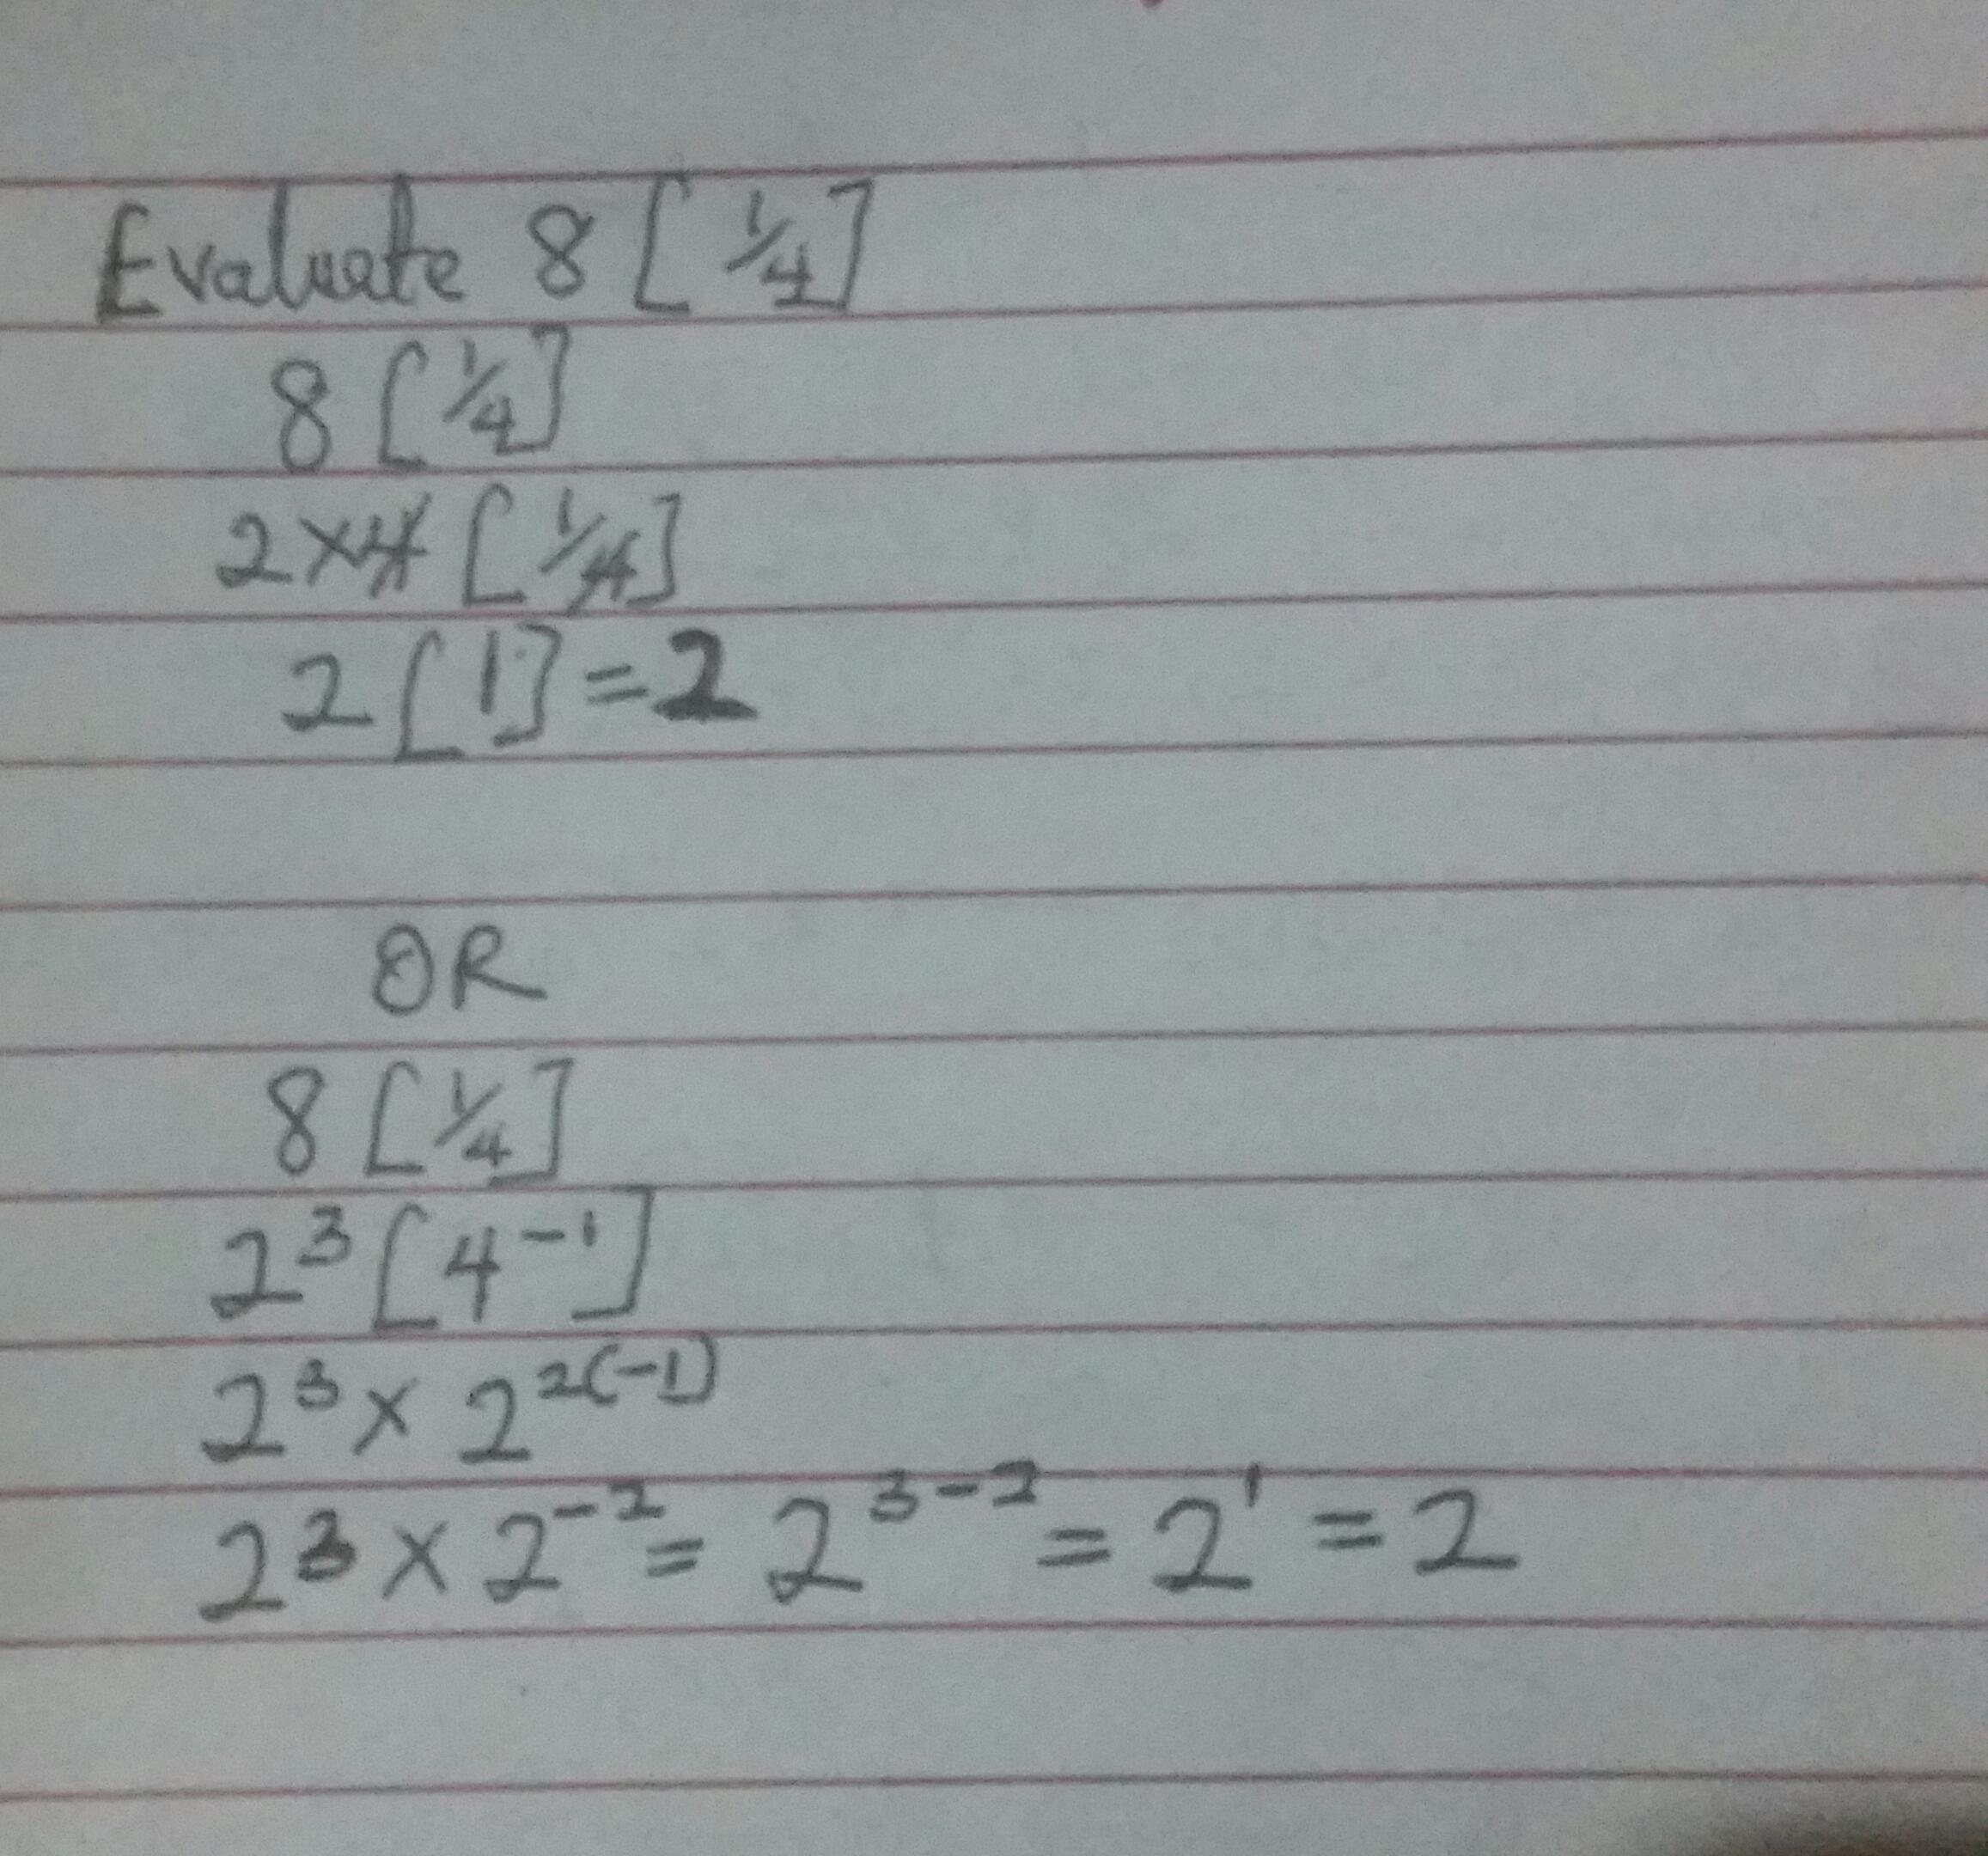 Evaluate 8 [ 1/4 ]
8 [ 1/4 ]
2 × 4 [ 1/4 ]
2 [ 1 ] = 2
OR
8 [ 1/4 ]
2³ [ 4⁻¹ ]
2³ × 2²⁽⁻¹⁾
2³ × 2⁻² = 2³⁻² = 2¹ = 2